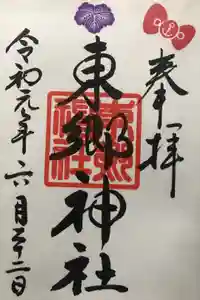 奉拝
東郷神社
令和元年六月二十二日